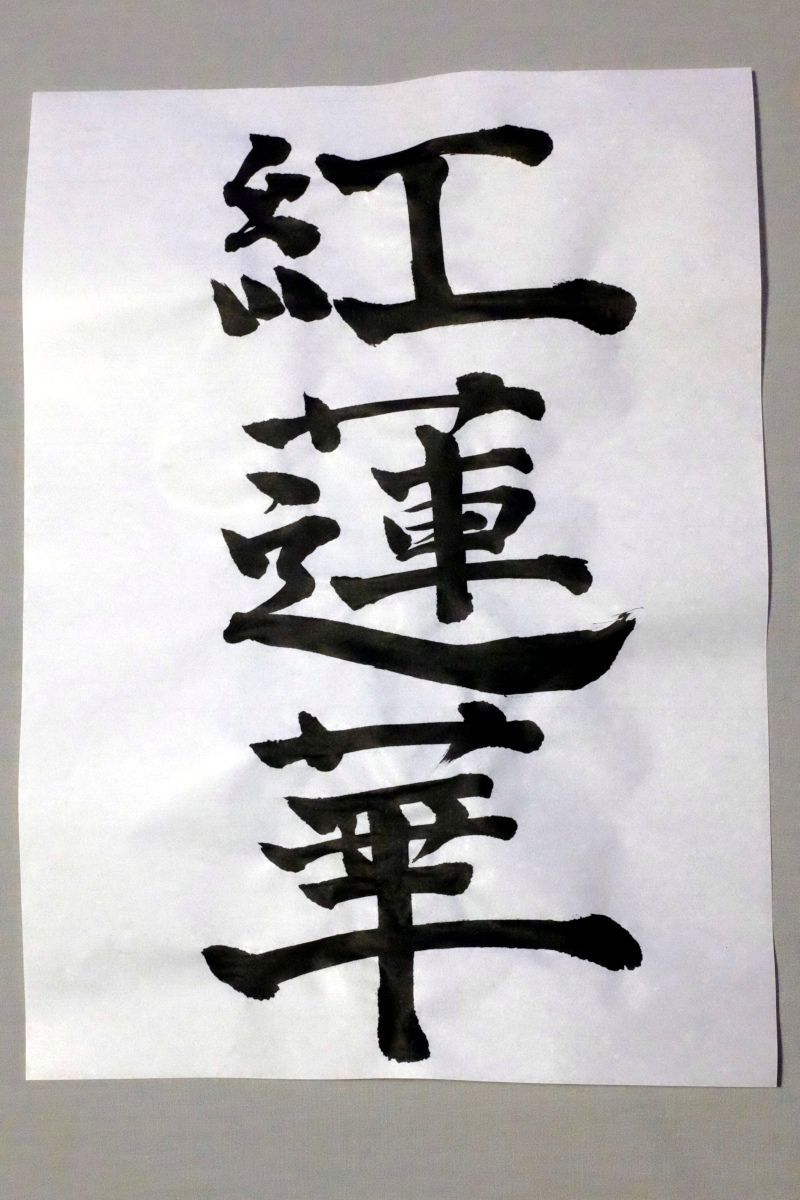 紅蓮華